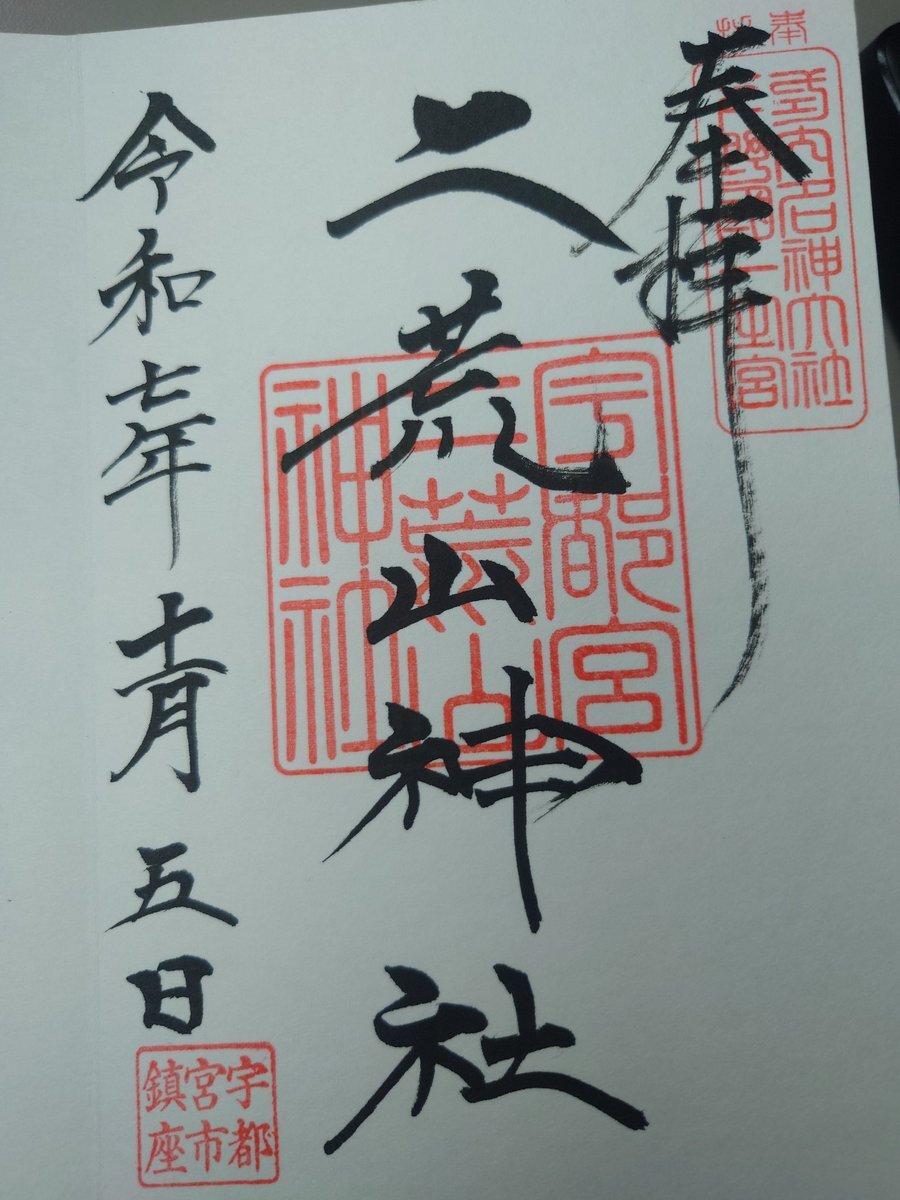 奉拝
式内名神大社
下野國一之宮
奉拝
二荒山神社
宇都宮
二荒山
神社
令和七年十一月五日
宇都
宮市
鎮座